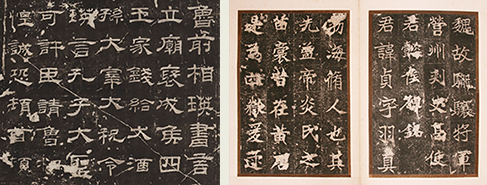 魯前相瑛書言
立廟褒成侯四
王家錢給犬酒
孫大宰大祝令
瑛言孔子大聖
可許臣請魯相
愚誠恐頓首
魏故龍驤將軍
營州刺史高使
君懿侯碑銘
君諱貞字羽真
勃海脩人也其
先蓋帝炎氏之
苗裔昔在黃唐
是為四嶽爰逮